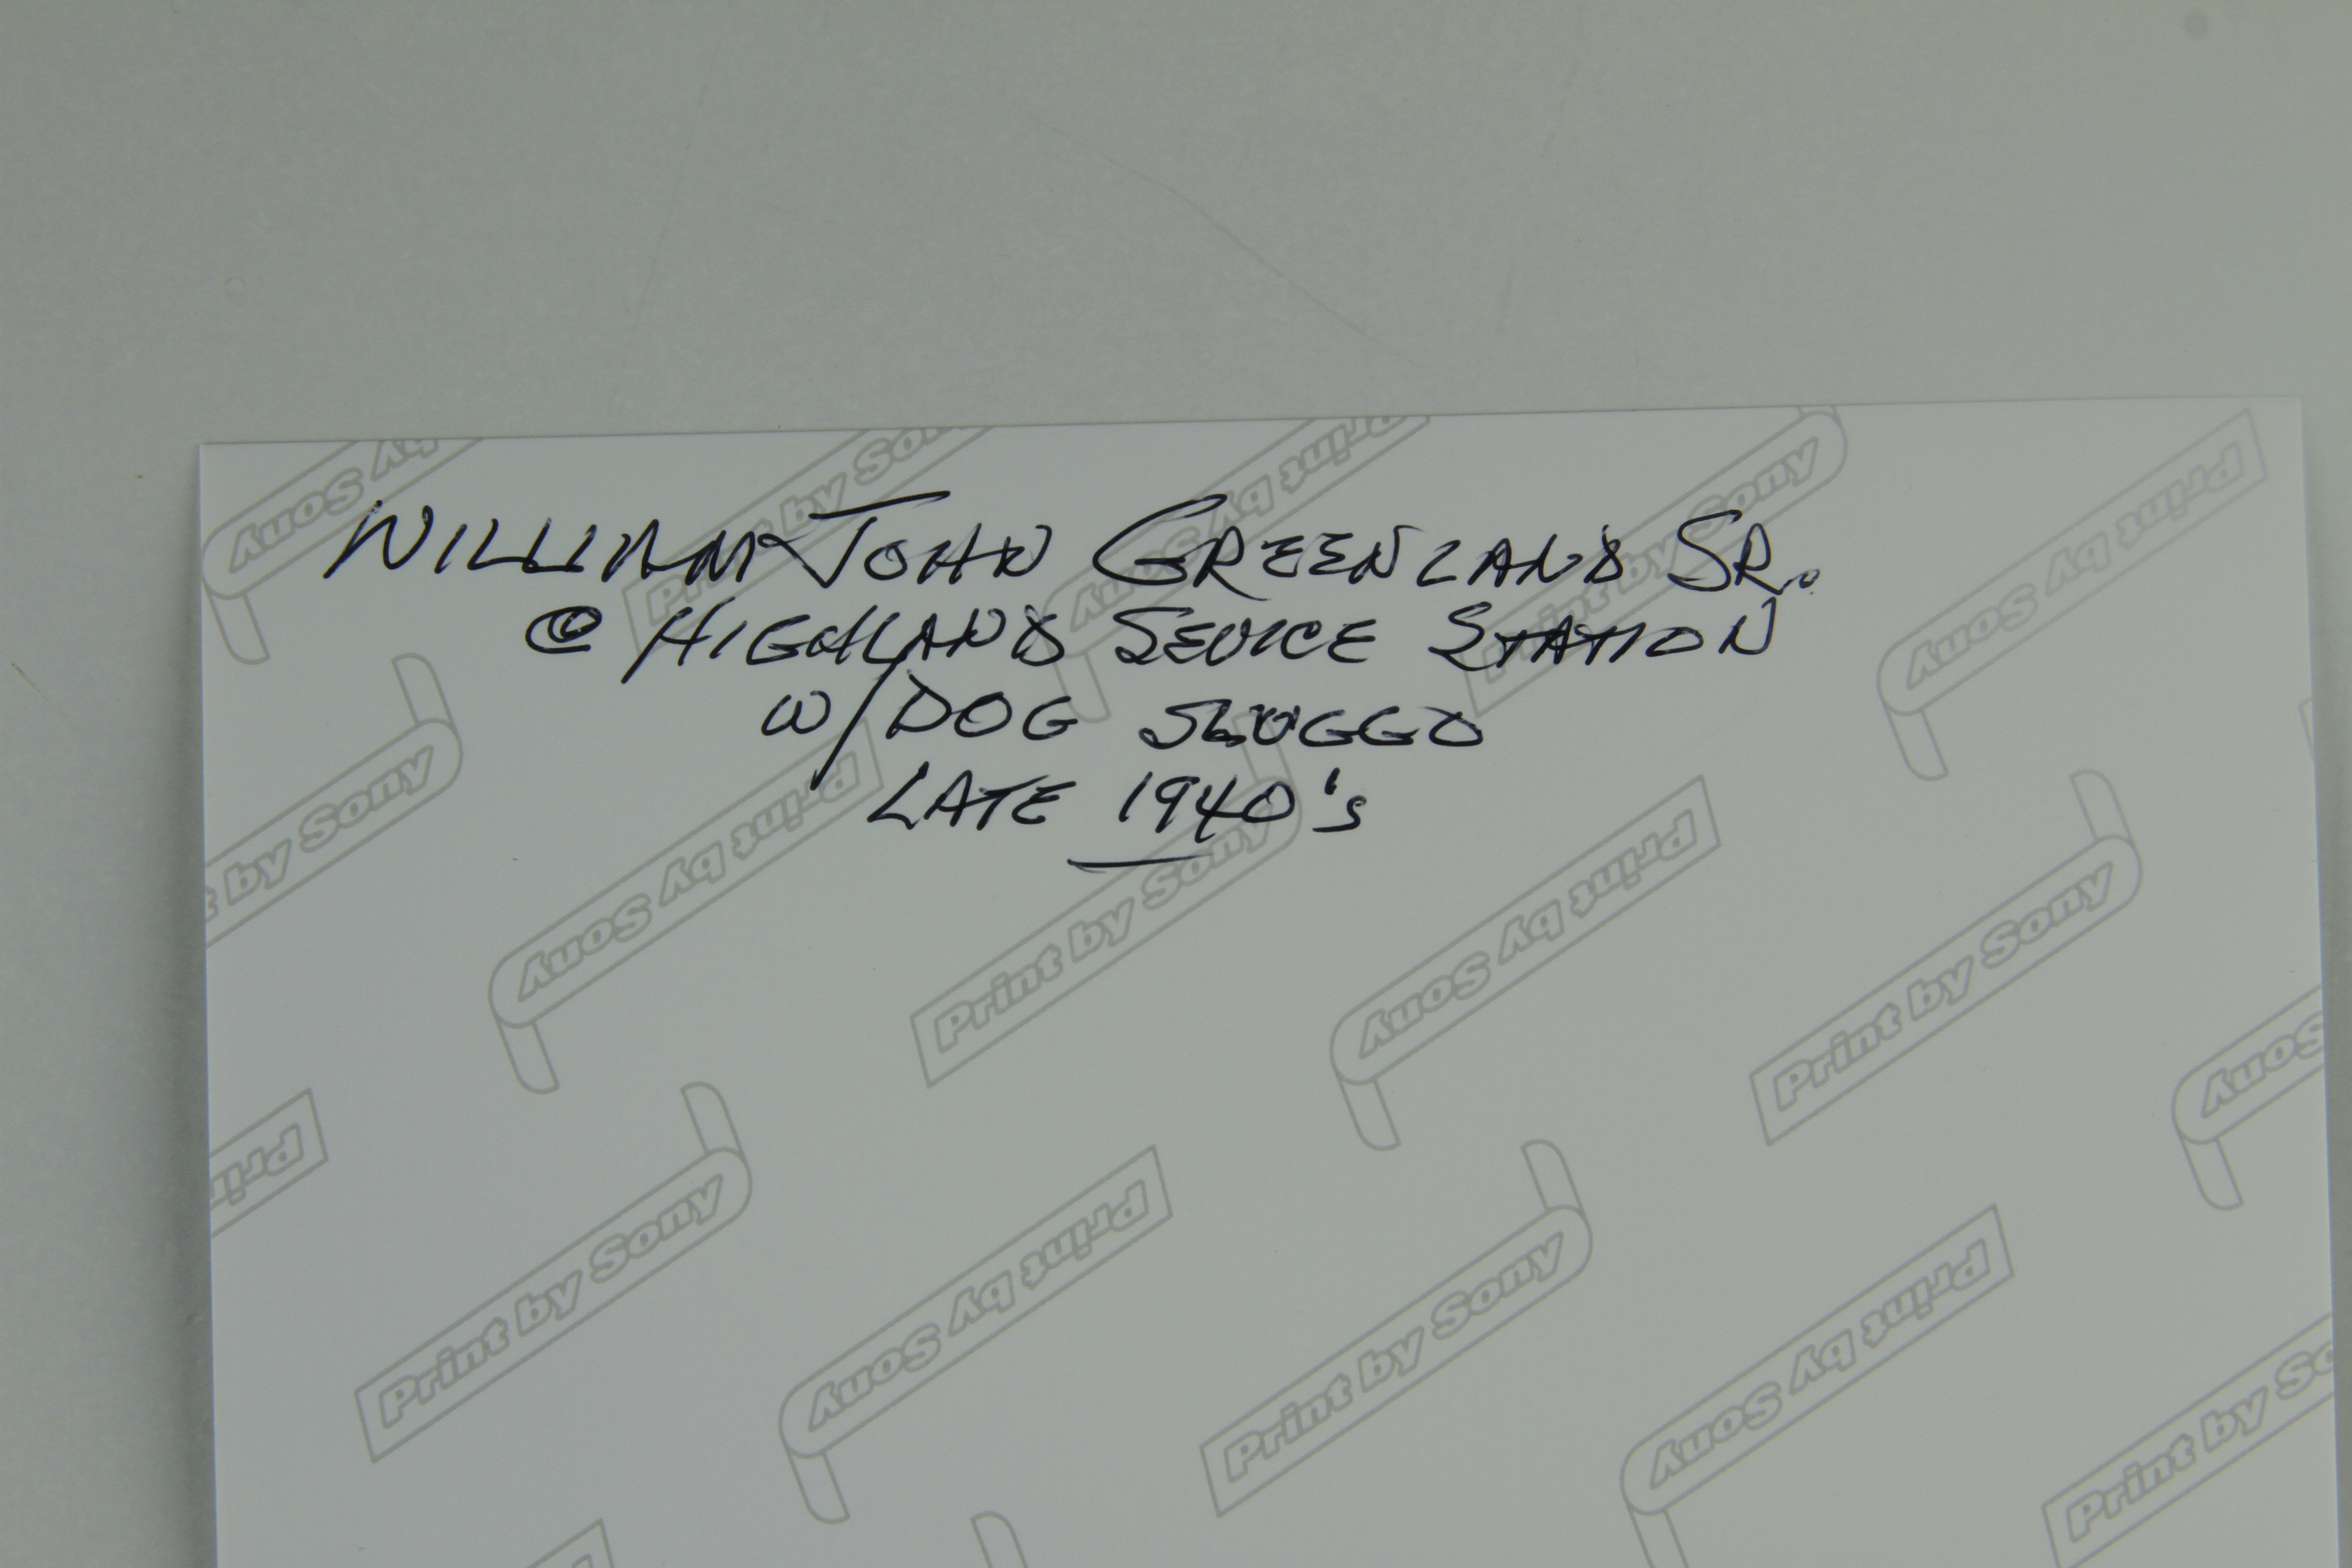 WILLIAM JOHN GREENLAND SR.
@ HIGHLAND SEVICE STATION
W/DOG SLUGGO
LATE 1940's
Print by Sony